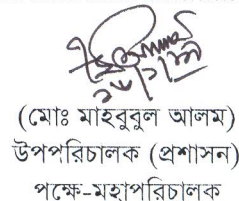 (মোঃ মাহবুবুল আলম)
উপপরিচালক (প্রশাসন)
পক্ষে-মহাপরিচালক